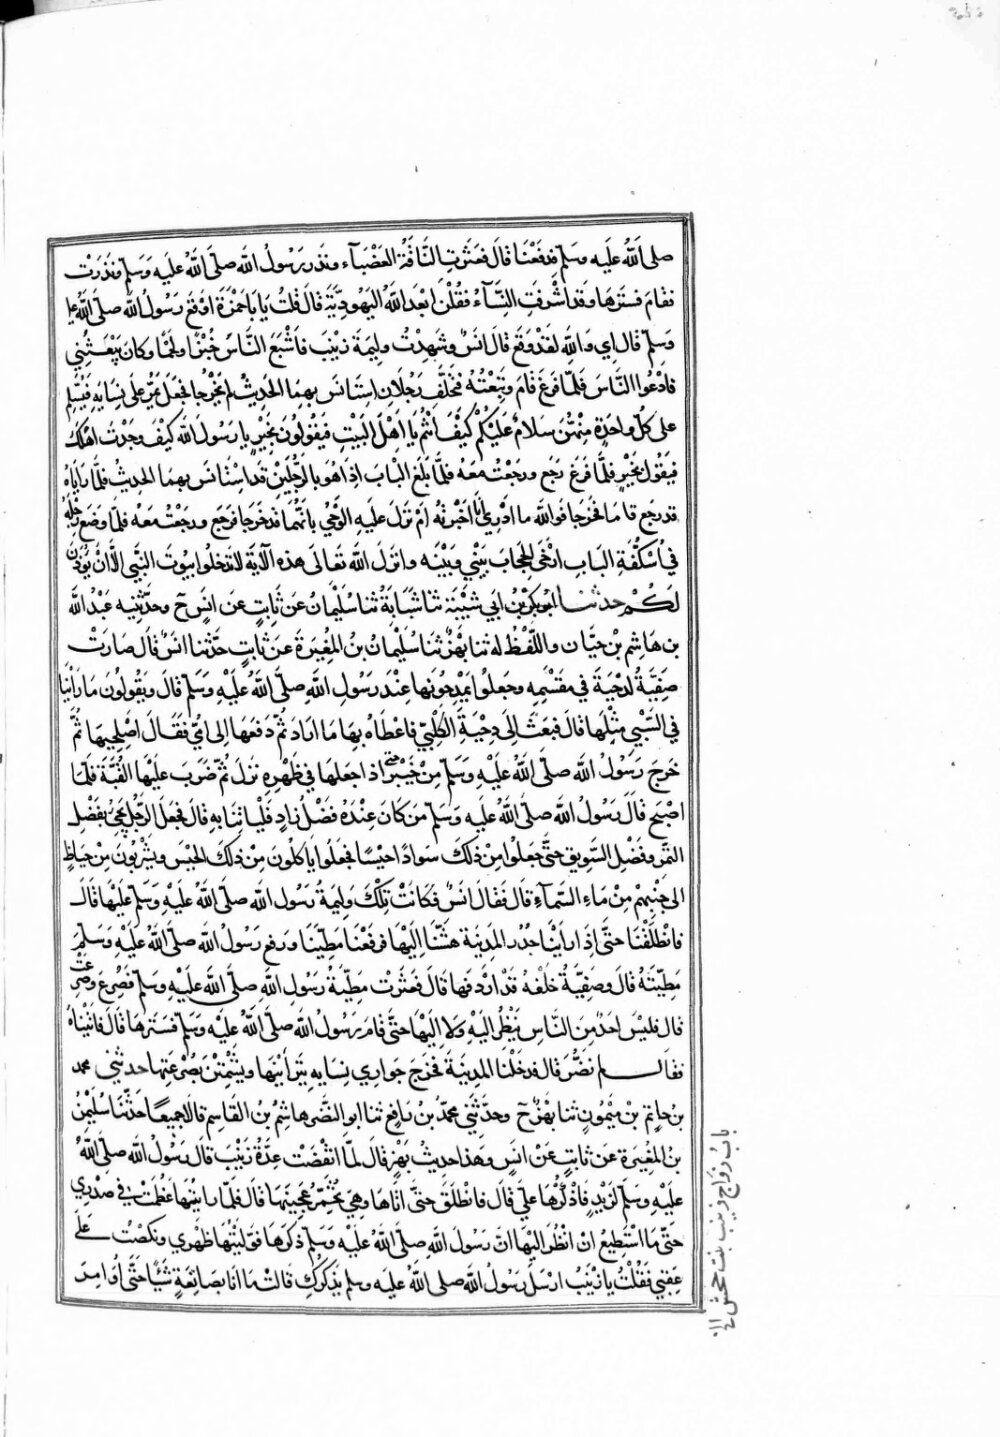 صلى الله عليه وسلم فدفعنا قال فعثرت الناقة العضبآء وندر رسول الله صلى الله عليه وسلم وندرت
فقام فسترها وقد اشرفت النسآء فقلن ابعد الله اليهودية قال قلت يا با حمزة اوقع رسول الله صلى الله علي
وسلم قال اي والله لقد وقع قال انس وشهدت وليمة زينب فاشبع الناس خبزا ولحما وكان يبعثني
فادعوا الناس فلما فرغ قام وتبعته فتخلف رجلان استانس بهما الحديث لم يخرجا فجعل يمر على نسايه فيسلم
على كل واحدة منهن سلام عليكم كيف انتم يا اهل البيت فيقولون بخير يا رسول الله كيف وجدت اهلك
فيقول بخير فلما فرغ رجع ورجعت معه فلما بلغ الباب اذا هو بالرجلين قد استانس بهما الحديث فلما راياه
قد رجع قاما فخرجا فوالله ما ادري انا اخبرته ام نزل عليه الوحي بانهما قد خرجا فرجع ورجعت معه فلما وضع رجله
في اسكفة الباب ارخى الحجاب بيني وبينه وانزل الله تعالى هذه الآية لا تدخلوا بيوت النبي الا ان يؤذن
لكم حدثنا ابو بكر بن ابي شيبة ثنا شبابة ثنا سليمان عن ثابت عن انس ح وحدثنيه عبد الله
بن هاشم بن حيان واللفظ له ثنا بهز ثنا سليمان بن المغيرة عن ثابت حدثنا انس قال صارت
صفية لدحية في مقسمه وجعلوا يمدحونها عند رسول الله صلى الله عليه وسلم قال ويقولون ما راينا
في السبي مثلها قال فبعث الى دحية الكلبي فاعطاه بها ما اراد ثم دفعها الى امي فقال اصلحيها ثم
خرج رسول الله صلى الله عليه وسلم من خيبر حتى اذا جعلها في ظهره نزل ثم ضرب عليها القبة فلما
اصبح قال رسول الله صلى الله عليه وسلم من كان عنده فضل زاد فلياتنا به قال فجعل الرجل يجيئ بفضل
التمر وفضل السويق حتى جعلوا من ذلك سوادا حيسا فجعلوا ياكلون من ذلك الحيس ويشربون من حياض
الى جنبهم من ماء السمآء قال فقال انس فكانت تلك وليمة رسول الله صلى الله عليه وسلم عليها قال
فانطلقنا حتى اذا راينا جدر المدينة هششنا اليها فرفعنا مطينا ورفع رسول الله صلى الله عليه وسلم
مطيته قال وصفية خلفه قد اردفها قال فعثرت مطية رسول الله صلى الله عليه وسلم فصرع وصرعت
قال فليس احد من الناس ينظر اليه ولا اليها حتى قام رسول الله صلى الله عليه وسلم فسترها قال فاتيناه
فقال لم نضر قال فدخلنا المدينة فخرج جواري نسايه يتراينها ويشمتن بصرعتها حدثني محمد
بن حاتم بن ميمون ثنا بهز ح وحدثني محمد بن رافع ثنا ابو النضر هاشم بن القاسم قالا جميعا حدثنا سليمن
بن المغيرة عن ثابت عن انس وهذا حديث بهز قال لما انقضت عدة زينب قال رسول الله صلى الله
عليه وسلم لزيد فاذكرها علي قال فانطلق حتى اتاها وهي تخمر عجينها قال فلما رايتها عظمت في صدري
حتى ما استطيع ان انظر اليها ان رسول الله صلى الله عليه وسلم ذكرها فوليتها ظهري ونكصت على
عقبي فقلت يا زينب ارسل رسول الله صلى الله عليه وسلم يذكرك قالت ما انا بصانعة شيأ حتى اوامر
باب زواج زينب بنت جحش